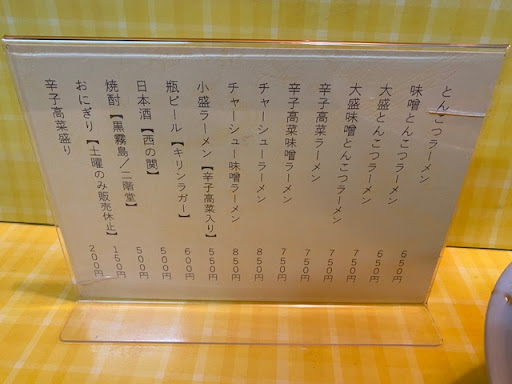 とんこつラーメン 650円
味噌とんこつラーメン 650円
大盛とんこつラーメン 750円
大盛味噌とんこつラーメン 750円
辛子高菜ラーメン 750円
辛子高菜味噌ラーメン 750円
チャーシューラーメン 850円
チャーシュー味噌ラーメン 850円
小盛ラーメン【辛子高菜入り】 550円
瓶ビール【キリンラガー】 600円
日本酒【西の関】 500円
焼酎【黒霧島/二階堂】 500円
おにぎり【土曜のみ販売休止】 150円
辛子高菜盛り 200円